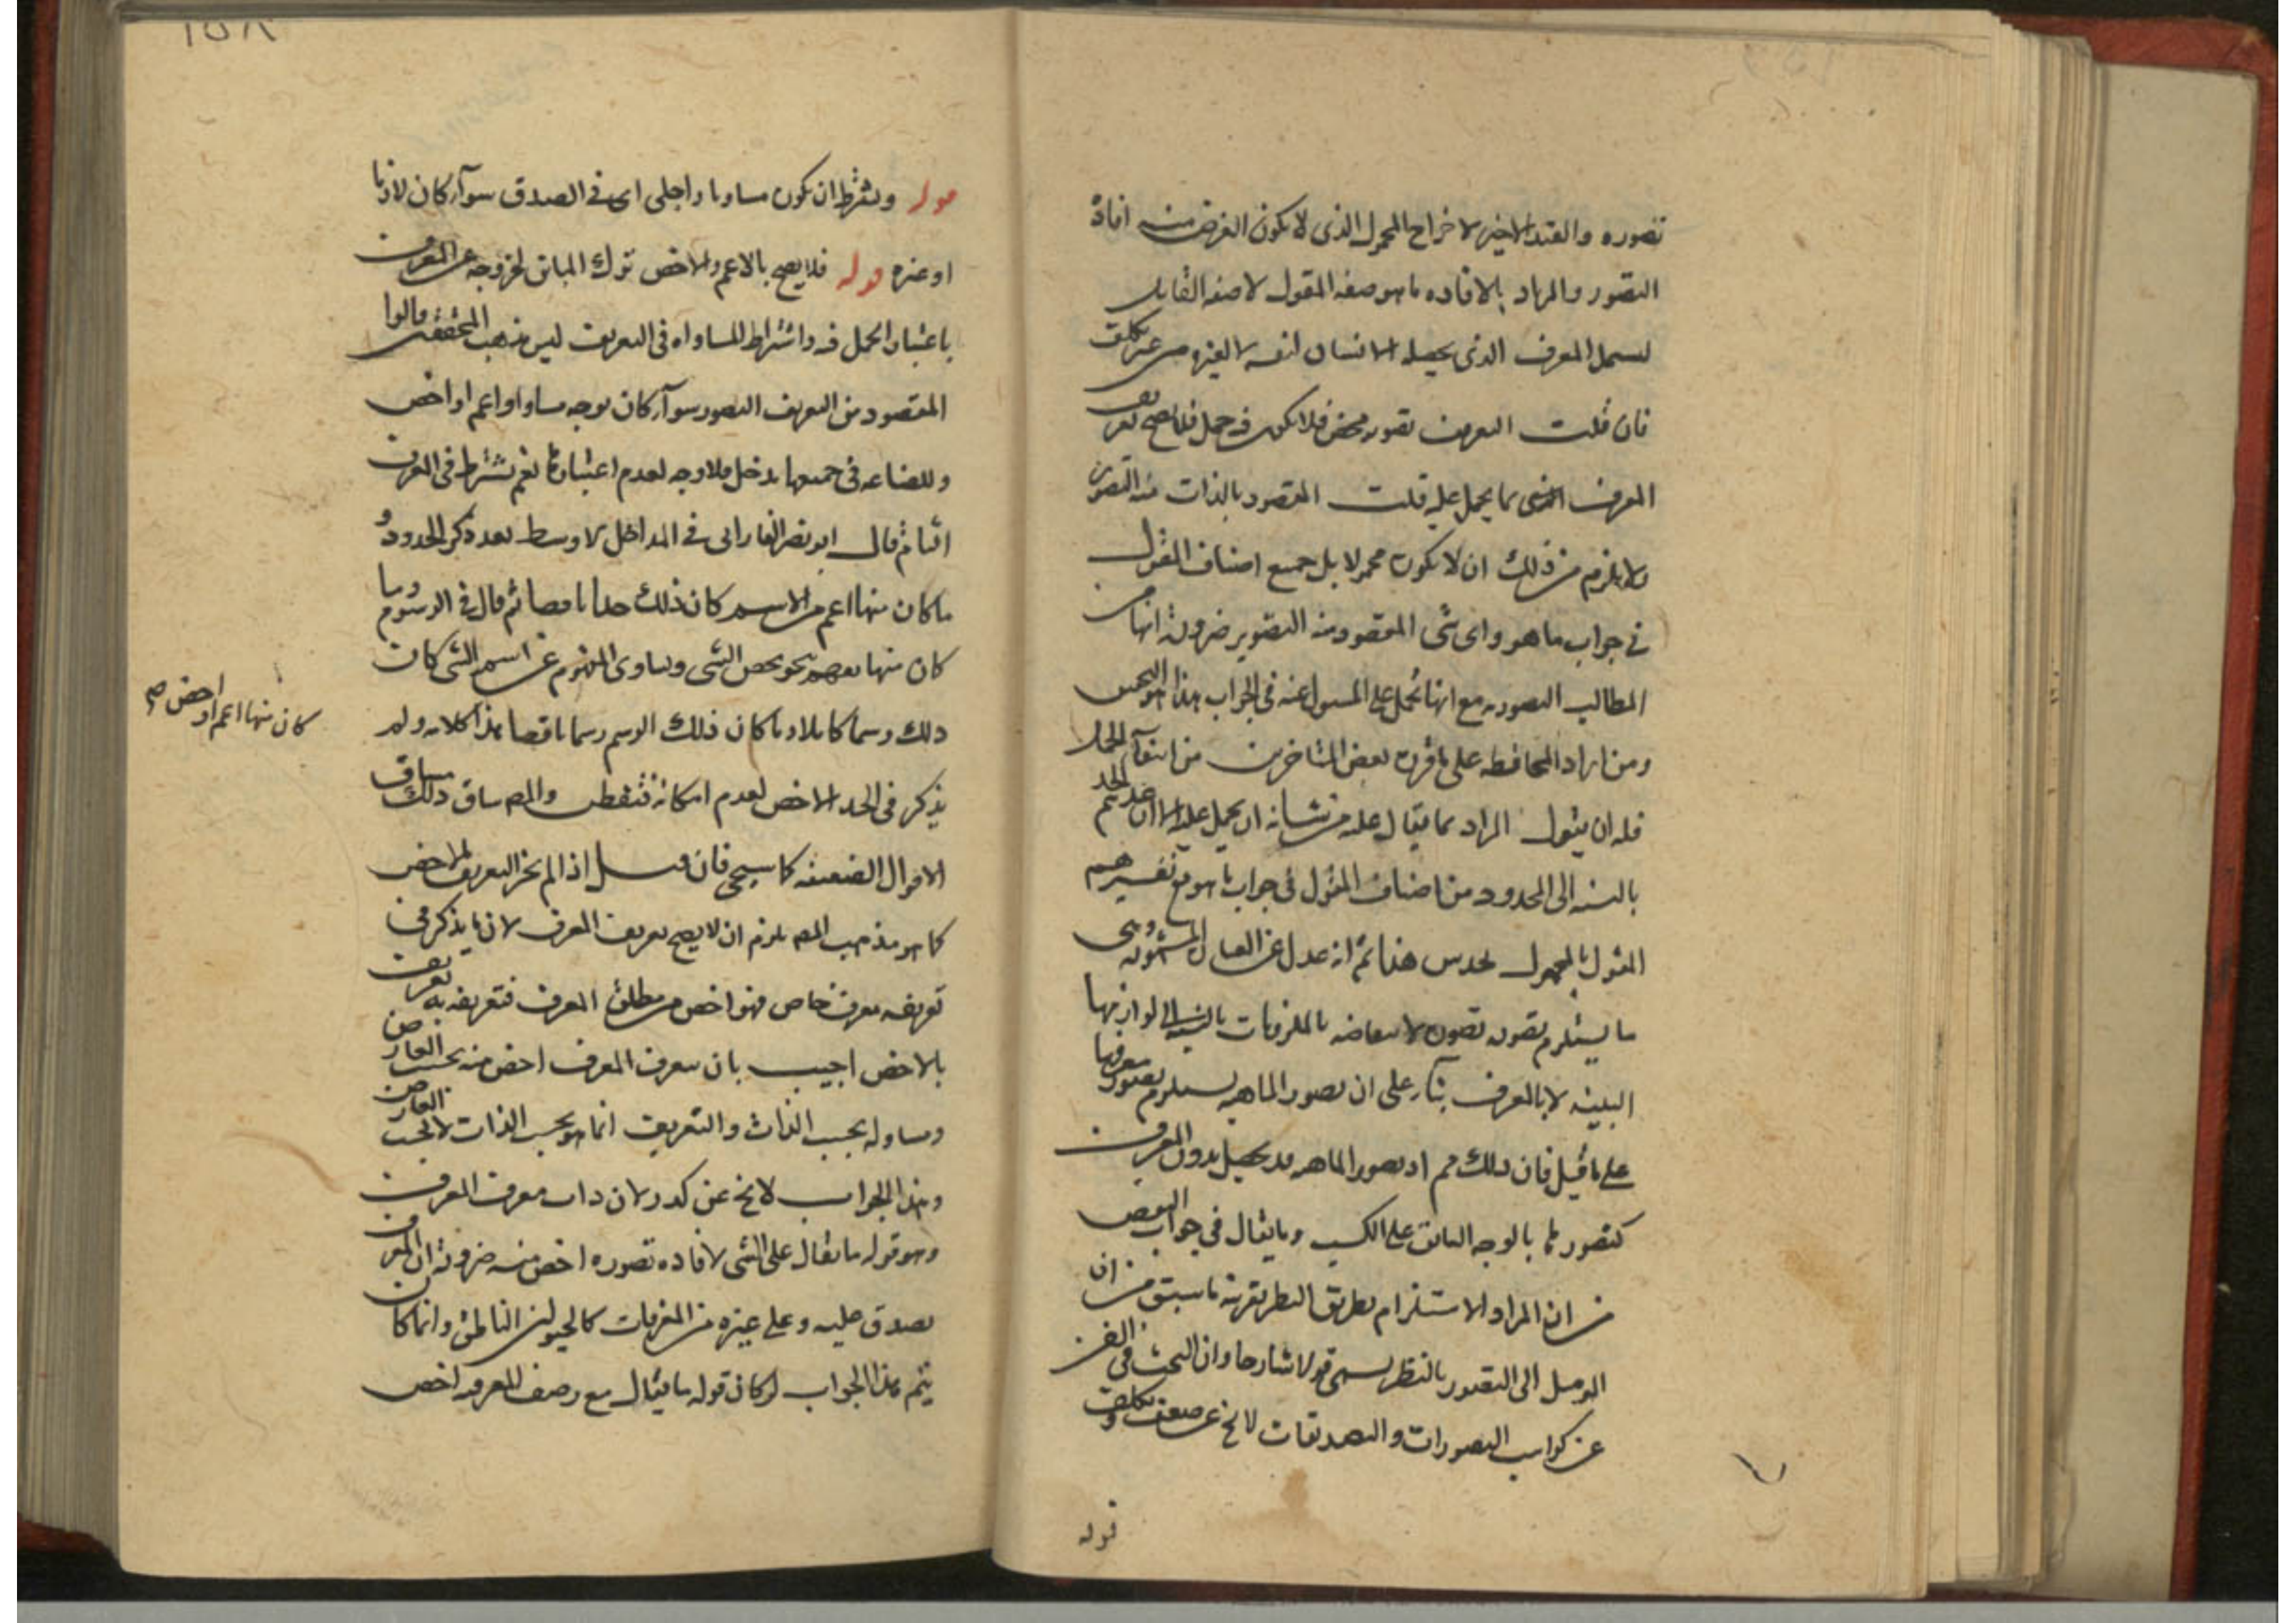 تصوره والقيد الاخير لاخراج المحمول الذى لا يكون الغرض منه افادة
التصور والمراد بالافاده ما هو صفه المقول لا صفه القايل
ليسمل المعرف الذى يحصله الانسان لنفسه لا لغيره من غير تكلف
فان قلت التعريف تصوير محض فلا يكون فيه حمل فلا يصح تعريف
المعرف بما يحمل عليه قلت المقصود بالذات منه التصوير
ولا يلزم من ذلك ان لا يكون محمولا بل جميع اصناف المقول
فى جواب ما هو واى شى المقصود منه التصوير ضرورة انها من
المطالب التصوريه مع انها تحمل على المسول عنه فى الجواب هذا هو التحقيق
ومن اراد المحافظه على ما قرره بعض المتاخرين من انتفآء الحمل
فله ان يقول المراد بما يقال عليه من شانه ان يحمل عليه الا ان عد الحد
بالنسبه الى المحدود من اصناف المقول فى جواب ما هو مع تفسيرهم
المقول بالمحمول يخدش هذا ثم انه عدل عن المشهوره وهى
ما يستلزم تصوره تصوره لانتقاضه بالملزومات بالنسبه الى لوازمها
البينه لا بالمعرف بنآء على ان تصور الماهيه يستلزم تصور معرفها
على ما قيل فان ذلك مم اذ تصور الماهيه قد يحصل بدون المعرف
كتصورها بالوجه السابق على الكسب وما يقال فى جواب النقض
من ان المراد الاستلزام بطريق النظر بقرينة ما سبق من ان
الموصل الى التصور بالنظر يسمى قولا شارحا وان البحث فى الفن
عن كواسب التصورات والتصديقات لا يخ عن ضعف وتكلف
قوله
١٥٨
قوله ويشترط ان يكون مساويا واجلى اى فى الصدق سوآء كان لازما
او غيره قوله فلا يصح بالاعم والاخص ترك المباين لخروجه عن المعرف
باعتبار الحمل فيه واشتراط المساواه فى التعريف ليس مذهب المحققين قالوا
المقصود من التعريف التصور سوآء كان بوجه مساو او اعم او اخص
وللصناعه فى جميعها مدخل فلا وجه لعدم اعتبارها نعم يشترط فى المعرف
التام قال ابو نصر الفارابى فى المداخل الاوسط بعد ذكر الحدود و
ما كان منها اعم من الاسم كان ذلك حدا ناقصا ثم قال فى الرسوم وما
كان منها بنحو يخص الشى ويساوى المفهوم عن اسم الشى كان
ذلك رسما كاملا وما كان ذلك الرسم رسما ناقصا هذا كلامه ولم
كان منها اعم او اخص صح
يذكر فى الحد الاخص لعدم امكانه فتفطن والمص ساق ذلك مساق
الاقوال الضعيفه كما سيجى فان قيل اذا لم يجز التعريف بالاخص
كما هو مذهب المص يلزم ان لا يصح تعريف المعرف لان ما يذكر فى
تعريفه معرف خاص فهو اخص من مطلق المعرف فتعريفه به تعريف
بالاخص اجيب بان معرف المعرف اخص منه بحسب العارض
ومساو له بحسب الذات والتعريف انما هو بحسب الذات لا بحسب العارض
وهذا الجواب لا يخ عن كدر لان ذات معرف المعرف
وهو قوله ما يقال على الشى لافاده تصوره اخص منه ضرورة ان المعرف
يصدق عليه وعلى غيره من المعرفات كالحيوان الناطق وانما كان
يتم هذا الجواب لو كان قوله ما يقال مع وصف المعرفيه اخص